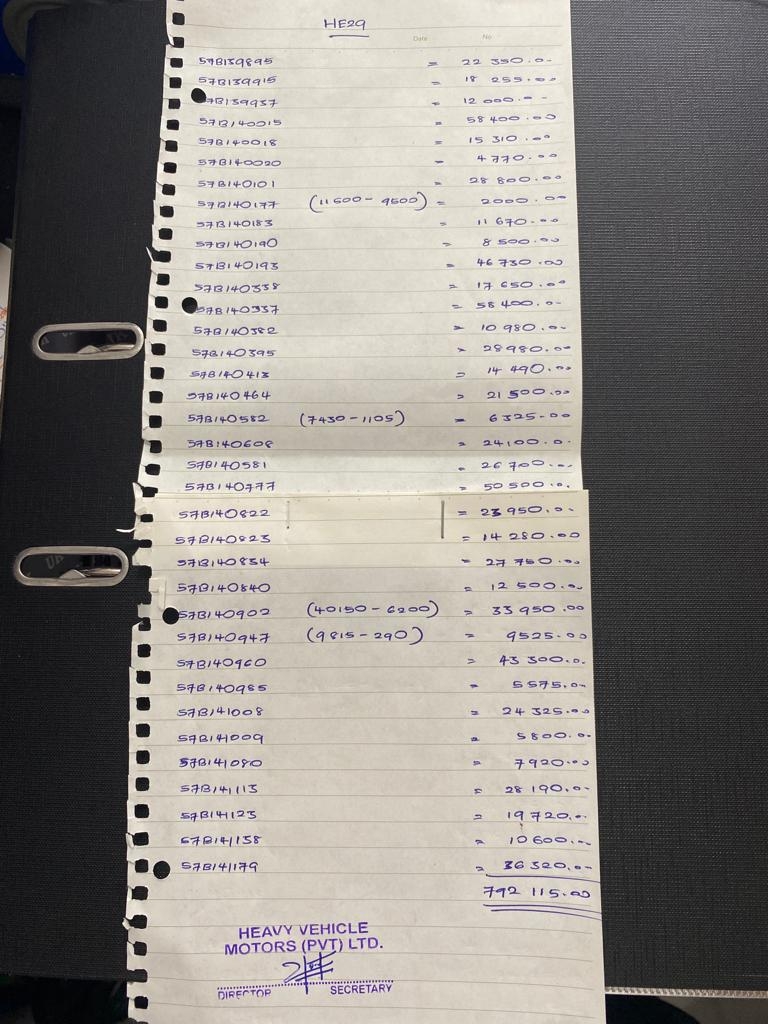 HE29
Date No
57B139895 = 22 350.00
57B139915 = 18 255.00
57B139937 = 12 000.00
57B140015 = 58 400.00
57B140018 = 15 310.00
57B140020 = 4 770.00
57B140101 = 28 800.00
57B140177 (11500 - 9500) = 2000.00
57B140183 = 11 670.00
57B140190 = 8 500.00
57B140193 = 46 730.00
57B140338 = 17 650.00
57B140337 = 58 400.00
57B140382 = 10 980.00
57B140395 = 28 980.00
57B140413 = 14 490.00
57B140464 = 21 500.00
57B140582 (7430 - 1105) = 6325.00
57B140608 = 24100.00
57B140581 = 26 700.00
57B140777 = 50 500.00
57B140822 = 23 950.00
57B140823 = 14 280.00
57B140834 = 27 750.00
57B140840 = 12 500.00
57B140902 (40150 - 6200) = 33 950.00
57B140947 (9815 - 290) = 9525.00
57B140960 = 43 300.00
57B140985 = 5575.00
57B141008 = 24 325.00
57B141009 = 5800.00
57B141080 = 7920.00
57B141113 = 28 190.00
57B141123 = 19 720.00
57B141138 = 10 600.00
57B141179 = 36 320.00
792 115.00
HEAVY VEHICLE
MOTORS (PVT) LTD.
DIRECTOR SECRETARY